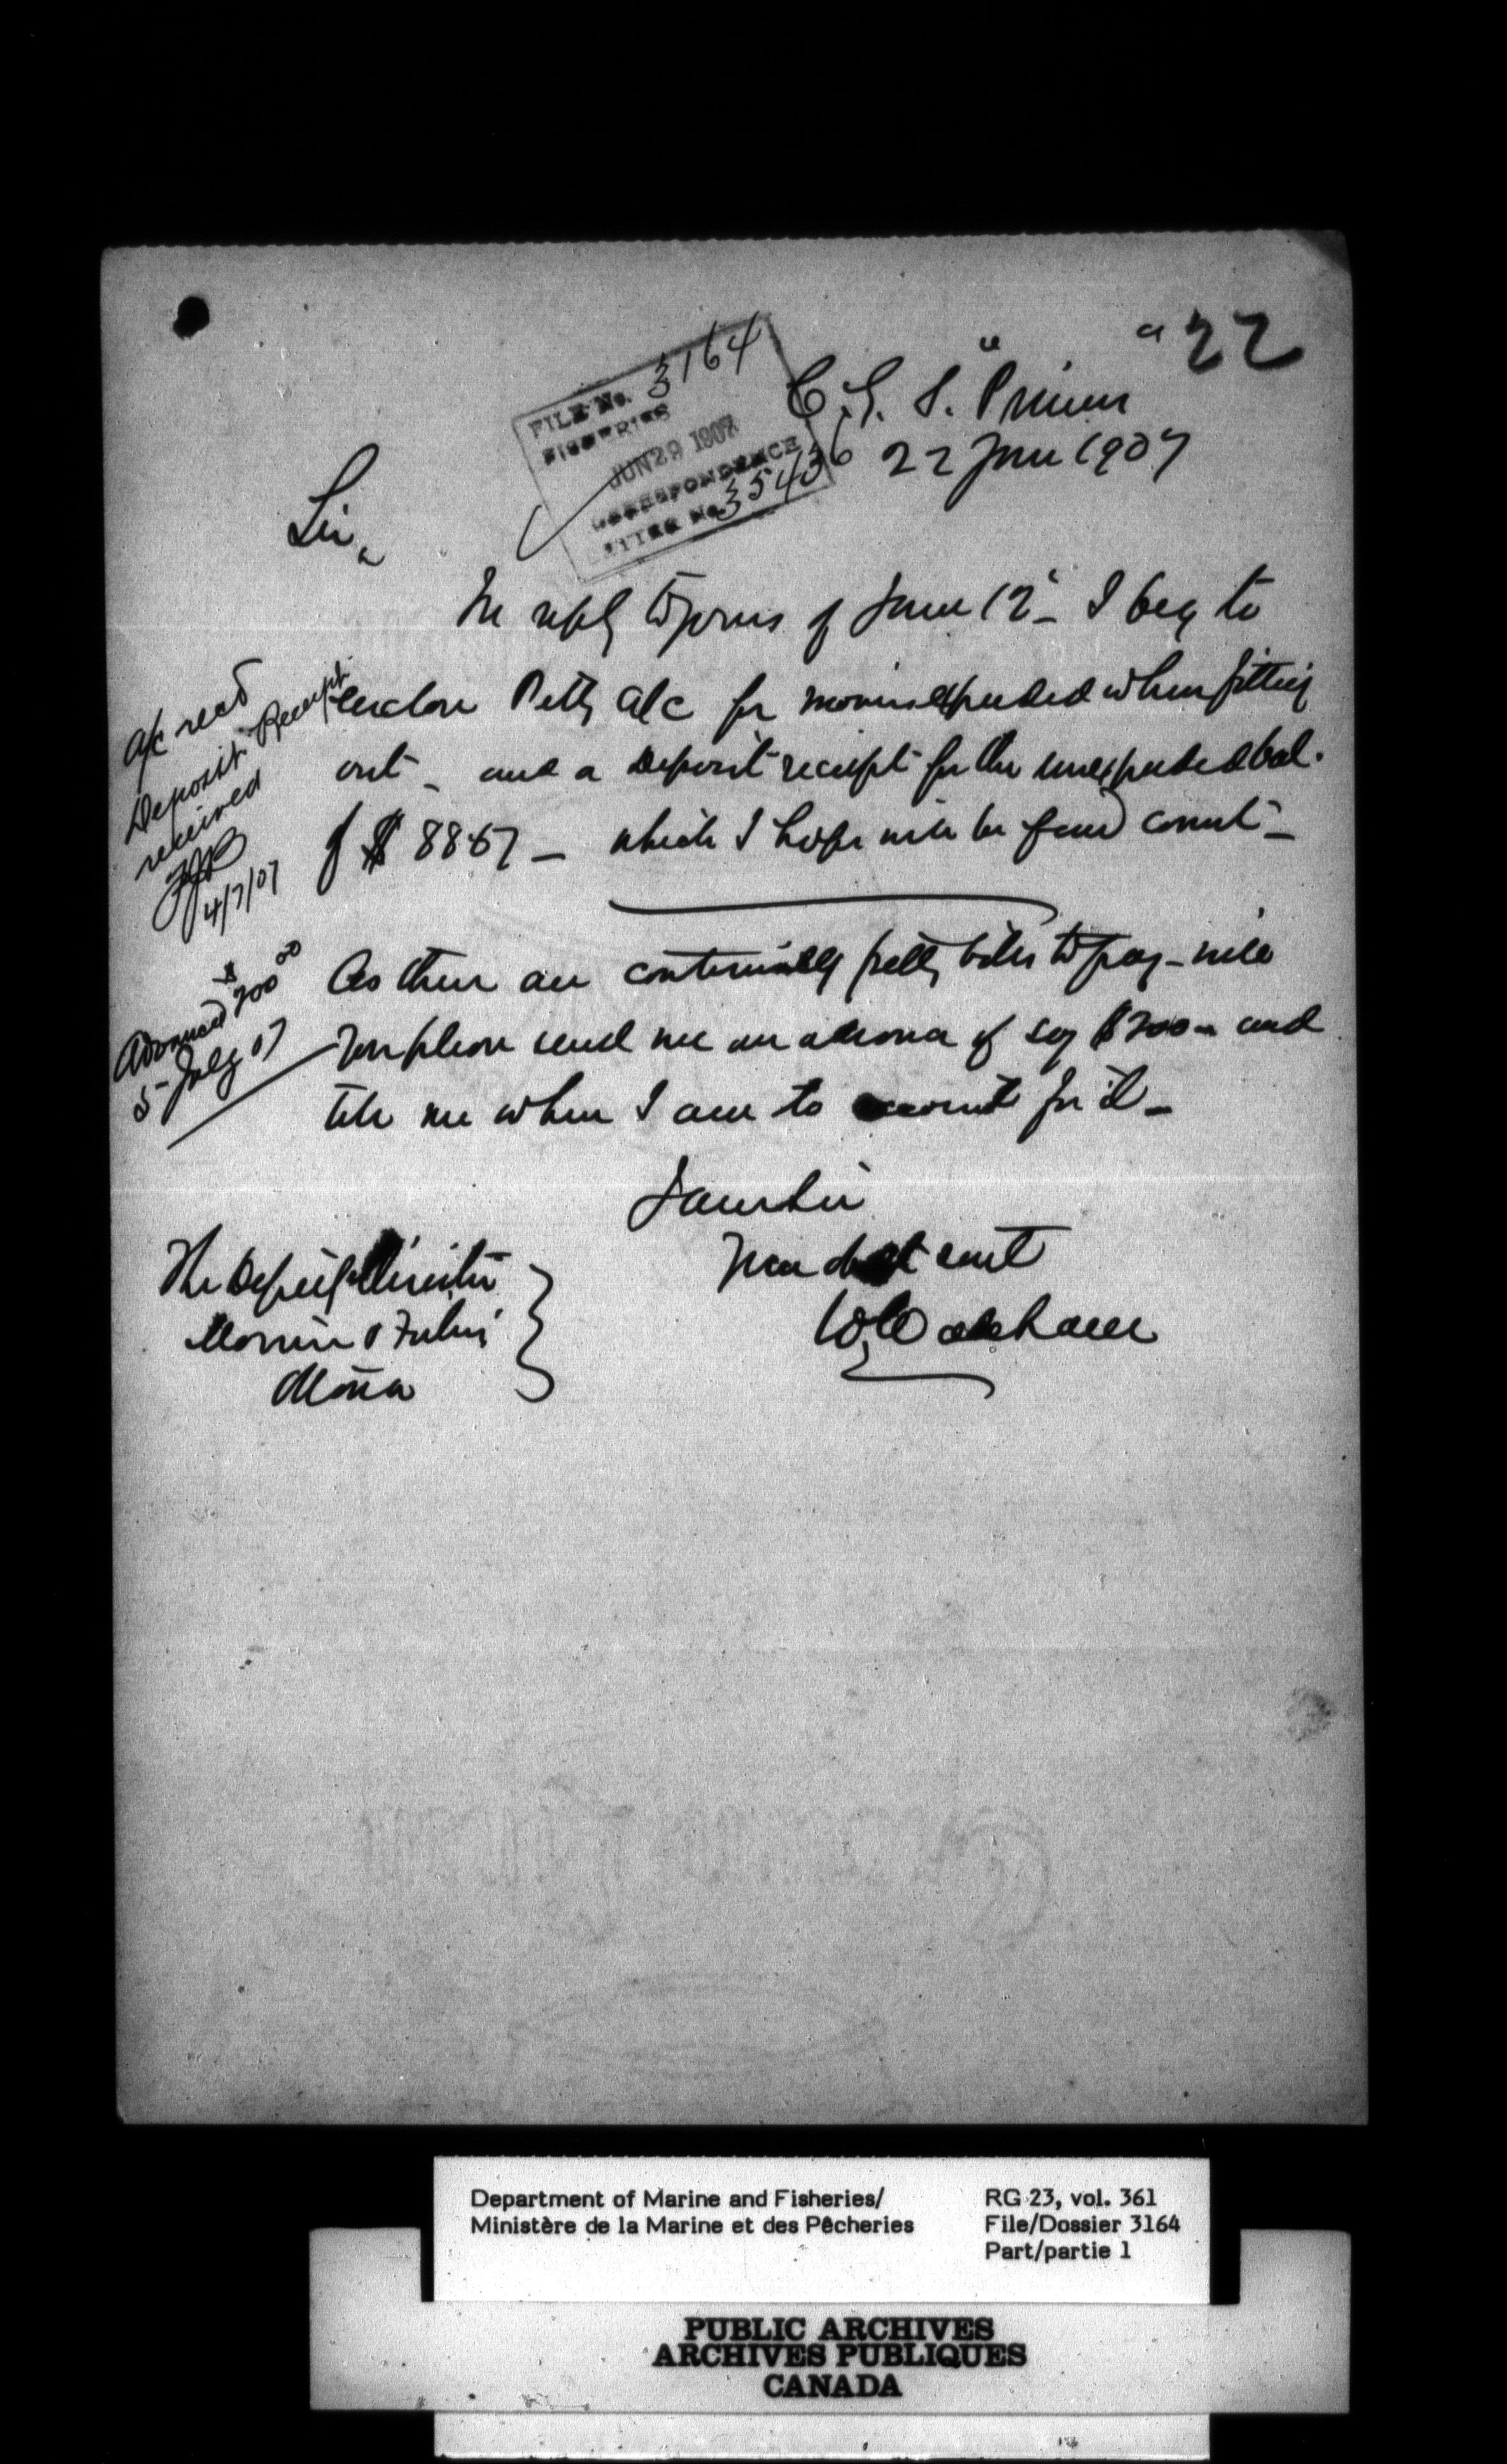 22
FILE No. 3164
FISHERIES
JUN 29 1907
CORRESPONDENCE
LETTER No. 35436
C. G. S. "Princess"
22 June 1907
Sir,
In reply to yours of June 12 - I beg to
enclose Petty a/c for monies expended when fitting
out - and a Deposit receipt for the unexpended bal.
of $ 88.57 - which I hope will be found correct -
As there are continually petty bills to pay - will
you please send me an advance of say $200 - and
tell me when I am to account for it -
I am Sir
Your obdt servt
W Wakeham
The Deputy Minister
Marine & Fisheries
Ottawa
a/c recd
Deposit Receipt
received
4/7/07
Advanced $200 00
5 July 07
Department of Marine and Fisheries/
Ministère de la Marine et des Pêcheries
RG 23, vol. 361
File/Dossier 3164
Part/partie 1
PUBLIC ARCHIVES
ARCHIVES PUBLIQUES
CANADA